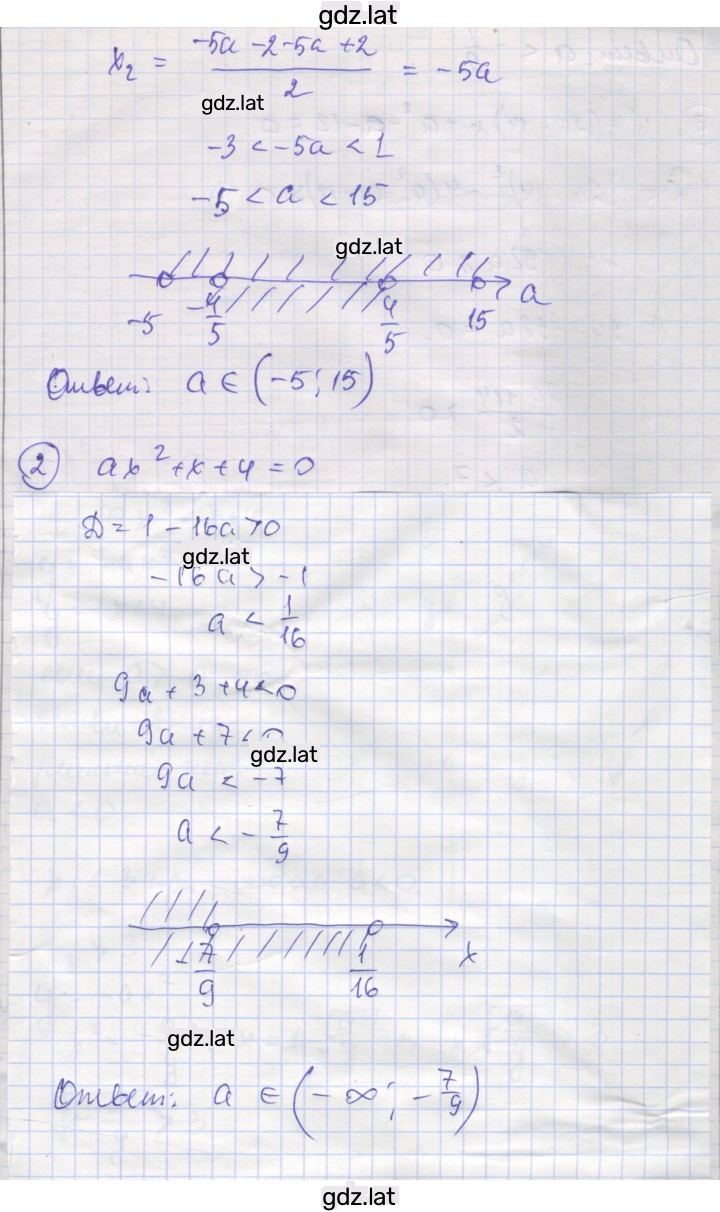 gdz.lat
x₂ = (-5a - 2 - 5a + 2)/2 = -5a
gdz.lat
-3 < -5a < 1
-5 < a < 15
gdz.lat
-5 -4/5 4/5 15 a
Ответ: a ∈ (-5; 15)
② ax² + x + 4 = 0
D = 1 - 16a > 0
gdz.lat
-16a > -1
a < 1/16
9a + 3 + 4 < 0
9a + 7 < 0
gdz.lat
9a < -7
a < -7/9
-7/9 1/16 x
gdz.lat
Ответ: a ∈ (-∞; -7/9)
gdz.lat